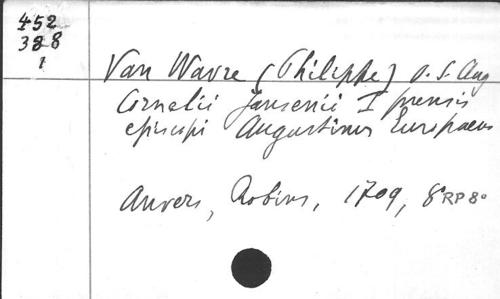 452
388
1
Van Wavre (Philippe) O.S. Aug
Cornelii Jansenii Iprensis
episcopi Augustinus Europaeus
Anvers, Robins, 1709, 8° RP 8°